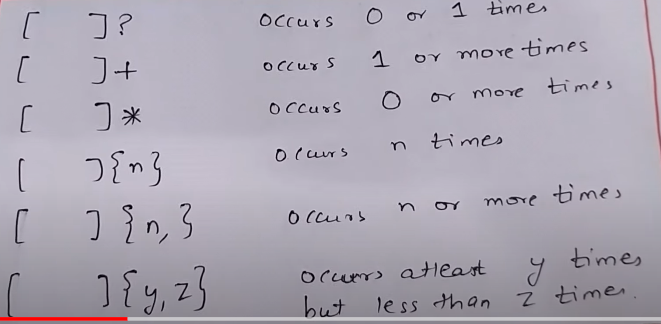 [ ]? occurs 0 or 1 times
[ ]+ occurs 1 or more times
[ ]* occurs 0 or more times
[ ]{n} occurs n times
[ ]{n,} occurs n or more times
[ ]{y,z} occurs atleast y times
but less than z times.